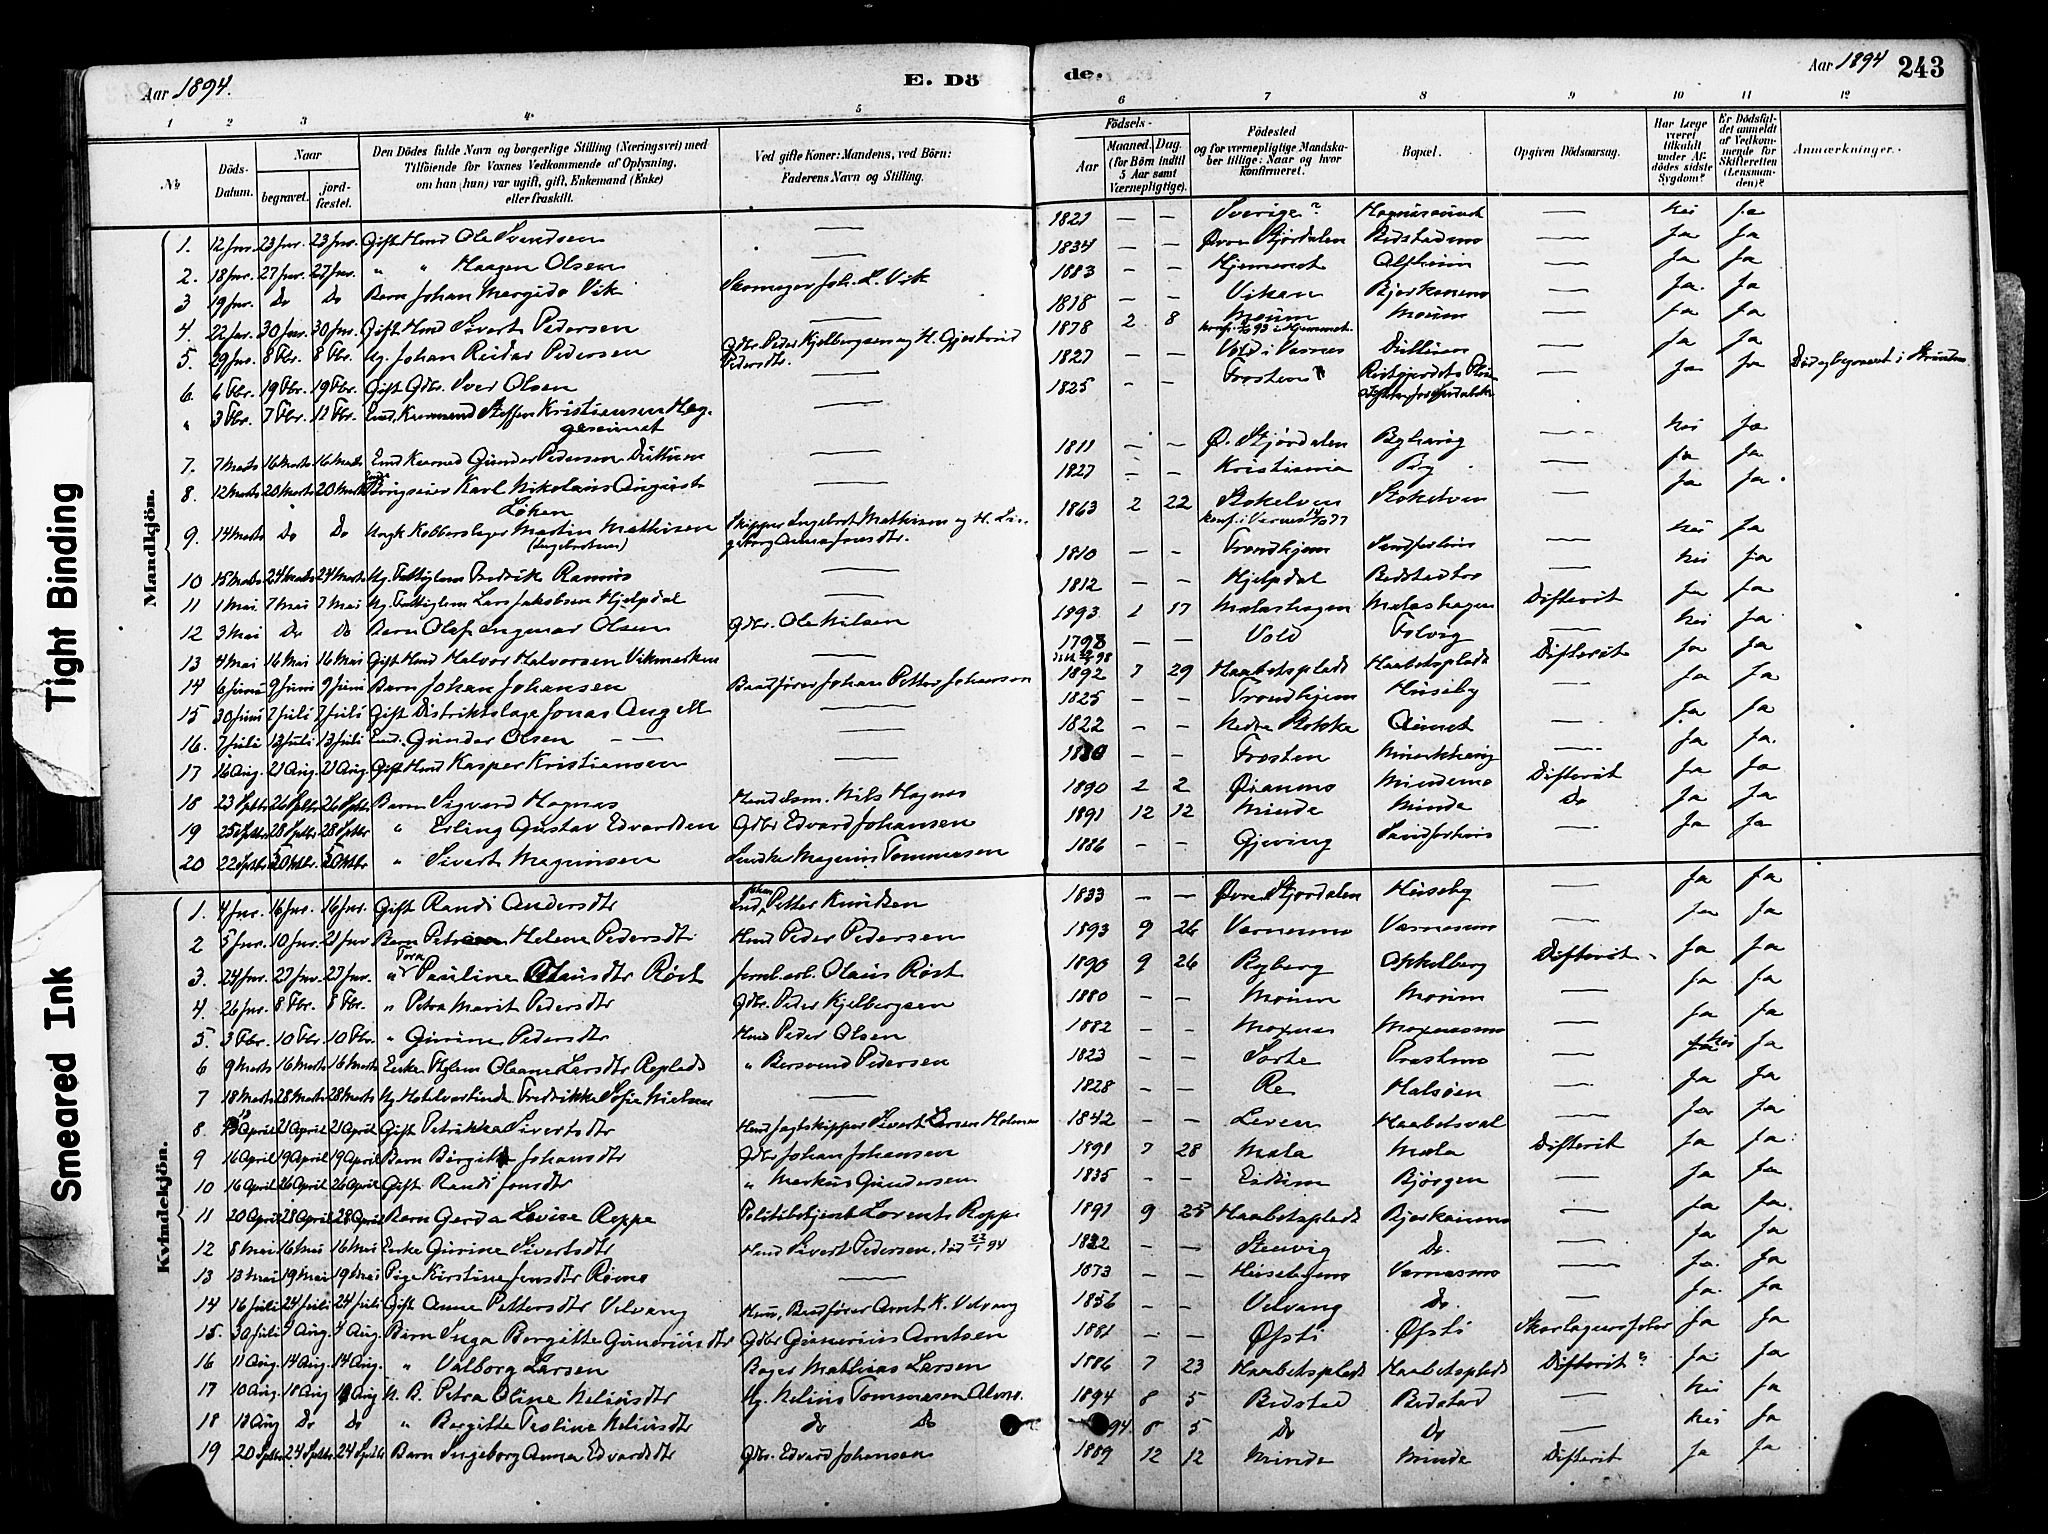 Aar 1894.
E. Dö
de.
Aar 1894
243
1 2 3 4 5
6 7 8 9 10 11 12
№
Döds-Datum.
Naar
begravet.
jord-fæstet.
Den Dödes fulde Navn og borgerlige Stilling (Næringsvei) med
Tilföiende for Voxnes Vedkommende af Oplysning,
om han (hun) var ugift, gift, Enkemand (Enke)
eller fraskilt.
Ved gifte Koner: Mandens, ved Börn:
Faderens Navn og Stilling.
Födsels-
Aar
Maaned. Dag.
(for Börn indtil
5 Aar samt
Værnepligtige).
Födested
og for værnepligtige Mandska-
ber tillige: Naar og hvor
konfirmeret.
Bopæl.
Opgiven Dödsaarsag.
Har Læge
været
tilkaldt
under Af-
dödes sidste
Sygdom?
Er Dödsfal-
det anmeldt
af Vedkom-
mende for
Skifteretten
(Lensman-
den)?
Anmærkninger.
Tight Binding
Smeared Ink
Mandkjön.
1. 12 Jnr. 23 Jnr. 23 Jnr. Gift Hmd Ole Svendsen — 1821 — — Sverige? — Nei Ja
2. 18 Jnr. 27 Jnr. 27 Jnr. " " Haagen Olsen — 1834 — — Øvre Stjørdalen — Ja Ja
3 19 Jnr. Do Do Barn Johan Margido Vik Skomager Joh. L. Vik 1883 — — — Ja Ja
4 22 Jnr. 30 Jnr. 30 Jnr. Gift Hmd Sivert Pedersen — 1818 — — Vikan — Ja Ja
5. 29 Jnr. 8 Fbr. 8 Fbr. Ug. Johan Reidar Pedersen Gdbr. Peder Kjelbergsen og H. Pedersdtr. 1878 2 8 Moum Moum — Ja Ja
6. 6 Fbr. 19 Fbr. 19 Fbr. Gift Gdbr. Iver Olsen — 1827 — — Vold i Værnes — Ja Ja
" 3 Fbr. 7 Fbr. 11 Fbr. Enk. Steffen Kristiansen — 1825 — — Frosten — Ja Ja
7. 7 Marts 16 Marts 16 Marts Gunder Pedersen — 1811 — — Ø. Stjørdalen — Nei Ja
8. 12 Marts 20 Marts 20 Marts Karl Nikolaus August Løken — 1827 — — Kristiania By — Ja Ja
9. 14 Marts Do Do Ungk Kobberslager Martin Mathisen (Ingebretsen) Skipper Ingebret Mathisen og H. Ingeborg Anna Jonsdtr. 1863 2 22 Stokelven konf. i Værnes 14/10 77 Stokelven — Ja Ja
10 15 Marts 24 Marts 24 Marts Ug. Fattiglem Fredrik — 1810 — — Trondhjem — Nei Ja
11 1 Mai 7 Mai 7 Mai Ug. Fattiglem Lars Jakobsen Hjelpdal — 1812 — — Hjelpdal — Nei Ja
12 3 Mai Do Do Barn Olaf Ingmar Olsen Gdbr. Ole Nilsen 1893 1 17 Mælashagen Mælashagen Difterit Ja Ja
13 4 Mai 16 Mai 16 Mai Gift Hmd Halvor Halvorsen Vikmarken — 1798 — — Vold — Nei Ja
14 6 Juni 9 Juni 9 Juni Barn Johan Johansen Baadfører Johan Petter Johansen 1892 7 29 Haabetsplads Haabetsplads Difterit Ja Ja
15 30 Juni 7 Juli 7 Juli Gift Distriktslæge Jonas Angell — 1825 — — Trondhjem Huseby — Ja Ja
16. 7 Juli 13 Juli 13 Juli Enk. Gunder Olsen — 1822 — — Nedre Stokke — Ja Ja
17 16 Aug. 21 Aug. 21 Aug. Gift Hmd Kasper Kristiansen — — — Frosten — Ja Ja
18 23 Sptbr 26 Sptbr 26 Sptbr Barn Sigvard Hognes Handelsm. Nils Hognes 1890 2 2 Øianmo Mindemo Difterit Ja Ja
19 25 Sptbr 28 Sptbr 28 Sptbr " Erling Gustav Edvardsen Gdbr Edvard Johansen 1891 12 12 Minde Minde Do Ja Ja
20 22 Sptbr 5 Oktbr 5 Oktbr " Sivert Magnusen Magnus Tommesen 1886 — — Gjeving — Ja Ja
Kvindekjön.
1. 4 Jnr. 16 Jnr. 16 Jnr. Gift Randi Andersdtr Johan Petter Knudsen 1833 — — Øvre Stjørdalen Huseby — Ja Ja
2 5 Jnr. 10 Jnr. 21 Jnr Barn Helene Pedersdtr Hmd Peder Pedersen 1893 9 26 Værnesmo Værnesmo — Ja Ja
3. 24 Jnr. 27 Jnr. 27 Jnr. " Tora Pauline Olausdtr Røst Jernb.arb. Olaus Røst 1890 9 26 Ryberg Opkelberg Difterit Ja Ja
4. 26 Jnr. 8 Fbr. 8 Fbr. " Petra Marit Pedersdtr Gdbr. Peder Kjelbergsen 1880 — — Moum Moum — Ja Ja
5. 3 Fbr. 10 Fbr. 10 Fbr. " Gurine Pedersdtr Hmd Peder Olsen 1882 — — Moxnes Moxnesmo — Ja Ja
6 9 Marts 16 Marts 16 Marts Enke Olaane Larsdtr Replads " Bersvend Pedersen 1823 — — Sorte Præstmo — Nei Ja
7 18 Marts 28 Marts 28 Marts Ug. Hotelvertinde Fredrikke Sofie Nielsen — 1828 — — Re Halsøen — Ja Ja
8. 13 April 21 April 21 April Gift Petrikka Sivertsdtr Hmd Jagtskipper Sivert Larsen Holmen 1842 — — Leren Haabetsval — Ja Ja
9 16 April 19 April 19 April Barn Birgit Johansdtr Gdbr Johan Johansen 1891 7 28 Mæla Mæla Difterit Ja Ja
10 16 April 26 April 26 April Gift Randi Jonsdtr " Markus Gundersen 1835 — — Eidum Bjørgen — Ja Ja
11 20 April 28 April 28 April Barn Gerda Lovise Reppe Politibetjent Lorents Reppe 1891 9 25 Haabetsplads — Ja Ja
12 8 Mai 16 Mai 16 Mai Enke Gurine Sivertsdtr Hmd Sivert Pedersen, død 22/1 94 — — Stenvig Do. — Ja Ja
13 13 Mai 19 Mai 19 Mai Pige Kirstine Jonsdtr Rømo — 1873 — — Husebymo Værnesmo — Ja Ja
14 16 Juli 24 Juli 24 Juli Gift Anne Pettersdtr Velvang Hmd, Baadfører Arnt K. Velvang 1856 — — Velvang Do. — Ja Ja
15. 30 Juli 4 Aug. 4 Aug. Barn Inga Bergitte Guneriusdtr Gdbr Gunerius Arntsen 1881 — — Øfsti Øfsti Skarlagensfeber Ja Ja
16 11 Aug. 14 Aug. 14 Aug. " Valborg Larsen Bager Mathias Larsen 1886 7 23 Haabetsplads Haabetsplads Difterit? Ja Ja
17 10 Aug. 18 Aug 18 Aug U. B. Petra Oline Neliusdtr Ug. Nelius Tommasen Almo. 1894 8 5 Bedstad Bedstad — Nei Ja
18 13 Aug Do Do " Bergitte Neliusdtr do Do 94. 8 5 Do Do — Nei Ja
19 20 Sptbr 24 Sptbr 24 Sptbr Barn Ingeborg Anna Edvardsdtr Gdbr. Edvard Johansen 1889 12 12 Minde Minde Difterit Ja Ja